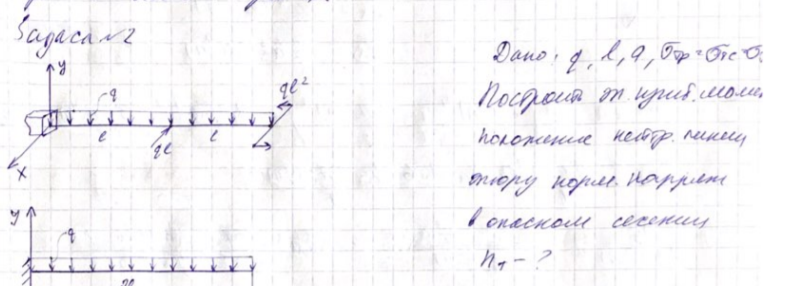 Задача №2
y
q
ql²
l
ql
l
x
Дано: q, l, a, σтр = σтс = σ
Построить эп. изгиб. момен
положение нейтр. линии
эпюру норм. напряж
в опасном сечении
nт - ?
y
q
2l